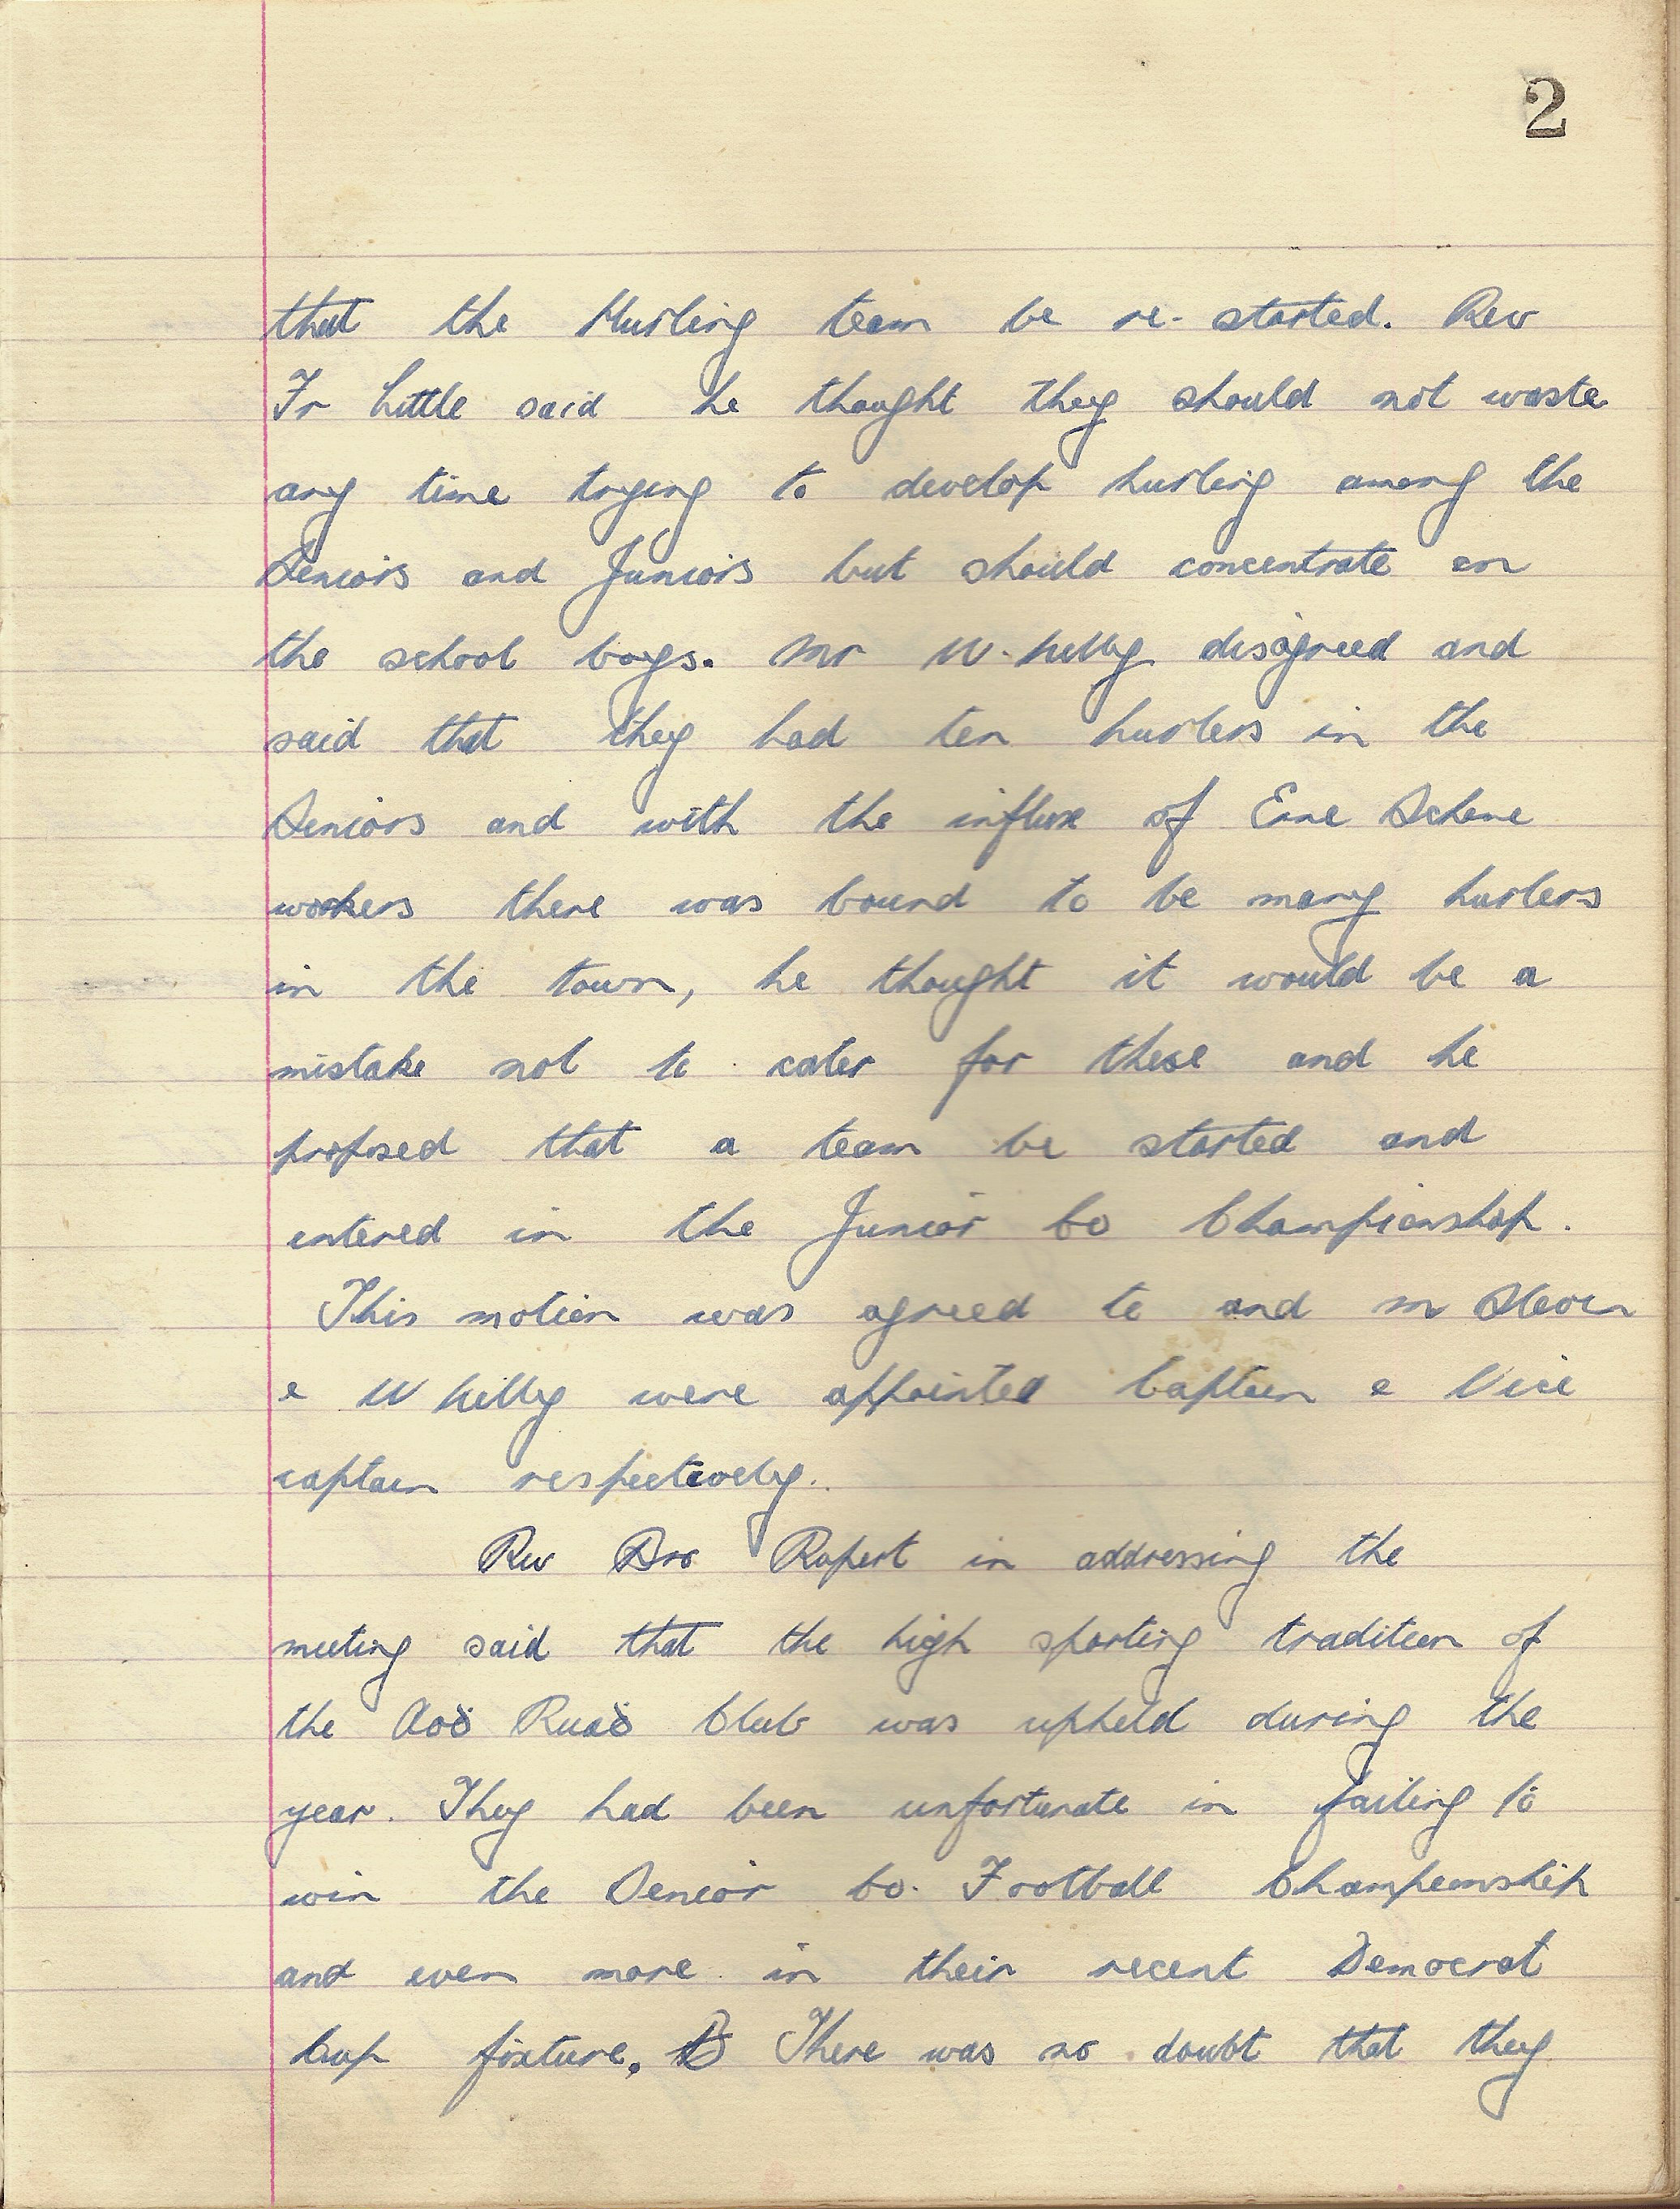 2
that the Hurling team be re-started. Rev
Fr Little said he thought they should not waste
any time trying to develop hurling among the
Seniors and Juniors but should concentrate on
the school boys. Mr W. Kelly disagreed and
said that they had ten hurlers in the
Seniors and with the influx of Erne Scheme
workers there was bound to be many hurlers
in the town, he thought it would be a
mistake not to cater for these and he
proposed that a team be started and
entered in the Junior Co Championship.
This motion was agreed to and M
& W Kelly were appointed Captain & Vice
captain respectively.
Rev Bro Rupert in addressing the
meeting said that the high sporting tradition of
the Aoḋ Ruaḋ Club was upheld during the
year. They had been unfortunate in failing to
win the Senior Co. Football Championship
and even more in their recent Democrat
Cup fixture. There was no doubt that they